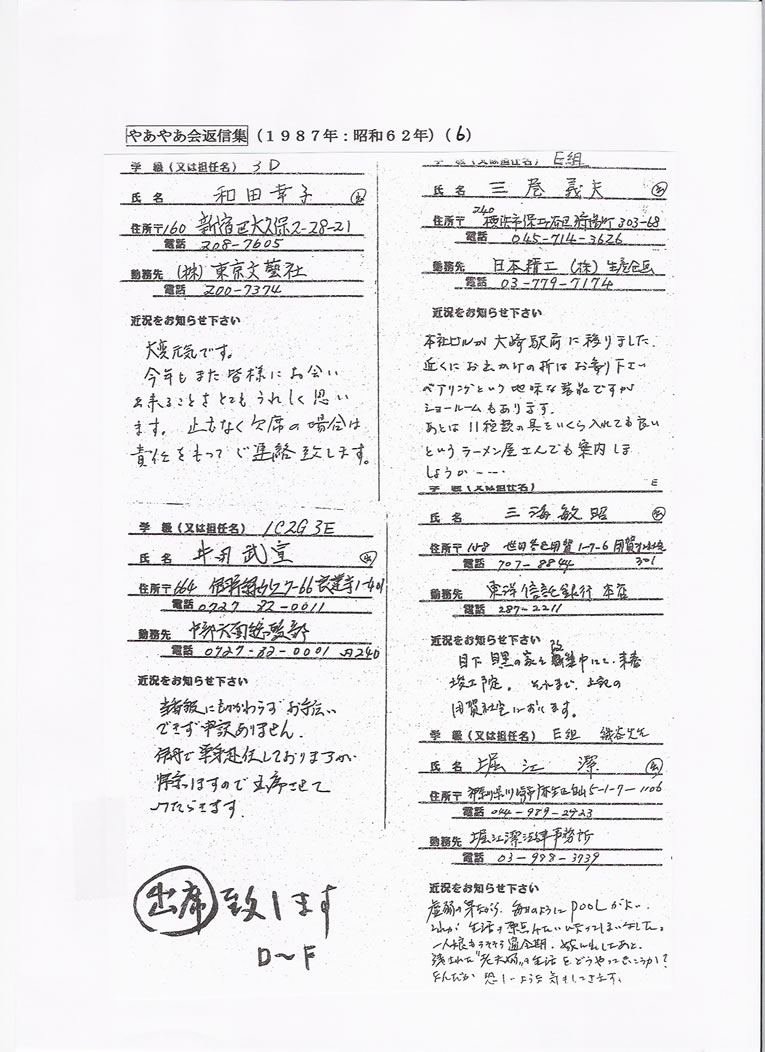 やあやあ会返信集 (1987年:昭和62年) (6)
学 級 (又は担任名) 3D
氏 名 和田幸子
住所〒160 新宿区大久保2-28-21
電話 208-7605
勤務先 (株)東京文藝社
電話 200-7374
近況をお知らせ下さい
大変元気です。
今年もまた皆様にお会い
出来ることをとてもうれしく思い
ます。止むなく欠席の場合は
責任をもってご連絡致します。
学 級 (又は担任名) 1C2G3E
氏 名 武宣
住所〒664
電話 0727-82-0011
勤務先 中部方面総監部
電話 0727-82-0001 内240
近況をお知らせ下さい
お手伝い
できず申訳ありません。
伊丹で単身赴任しておりますが
出席させて
いただきます。
出席致します
D~F
学 級 (又は担任名) E組
氏 名 三 義夫
住所〒240 横浜市保土ヶ谷区狩場町303-68
電話 045-714-3626
勤務先 日本精工(株)生産企画
電話 03-779-7174
近況をお知らせ下さい
本社ビルが大崎駅前に移りました。
近くにお出かけの折はお寄り下さい
ベアリングという地味な製品ですが
ショールームもあります。
あとは11種類の具をいくら入れても良い
というラーメン屋さんでも案内しま
しょうか----
学 級 (又は担任名) E
氏 名 三海敏昭
住所〒158 世田谷区用賀1-7-6 301
電話 707-8844
勤務先 東洋信託銀行 本店
電話 287-2211
近況をお知らせ下さい
目下 目黒の家を改築中にて、来春
竣工予定。それまで、上記の
用賀社宅におります。
学 級 (又は担任名) E組
氏 名 堀江 潔
住所〒神奈川県川崎市麻生区白山5-1-7-1106
電話 044-989-2923
勤務先 堀江潔法律事務所
電話 03-988-3739
近況をお知らせ下さい
毎日のようにPOOLがよい。
これが生活の原点みたいになってしまいました。
一人娘もそろそろ適令期。嫁に出したあと、
残された"老夫婦"の生活をどうやっていこうか?
なんだか恐しいような気もしてきます。